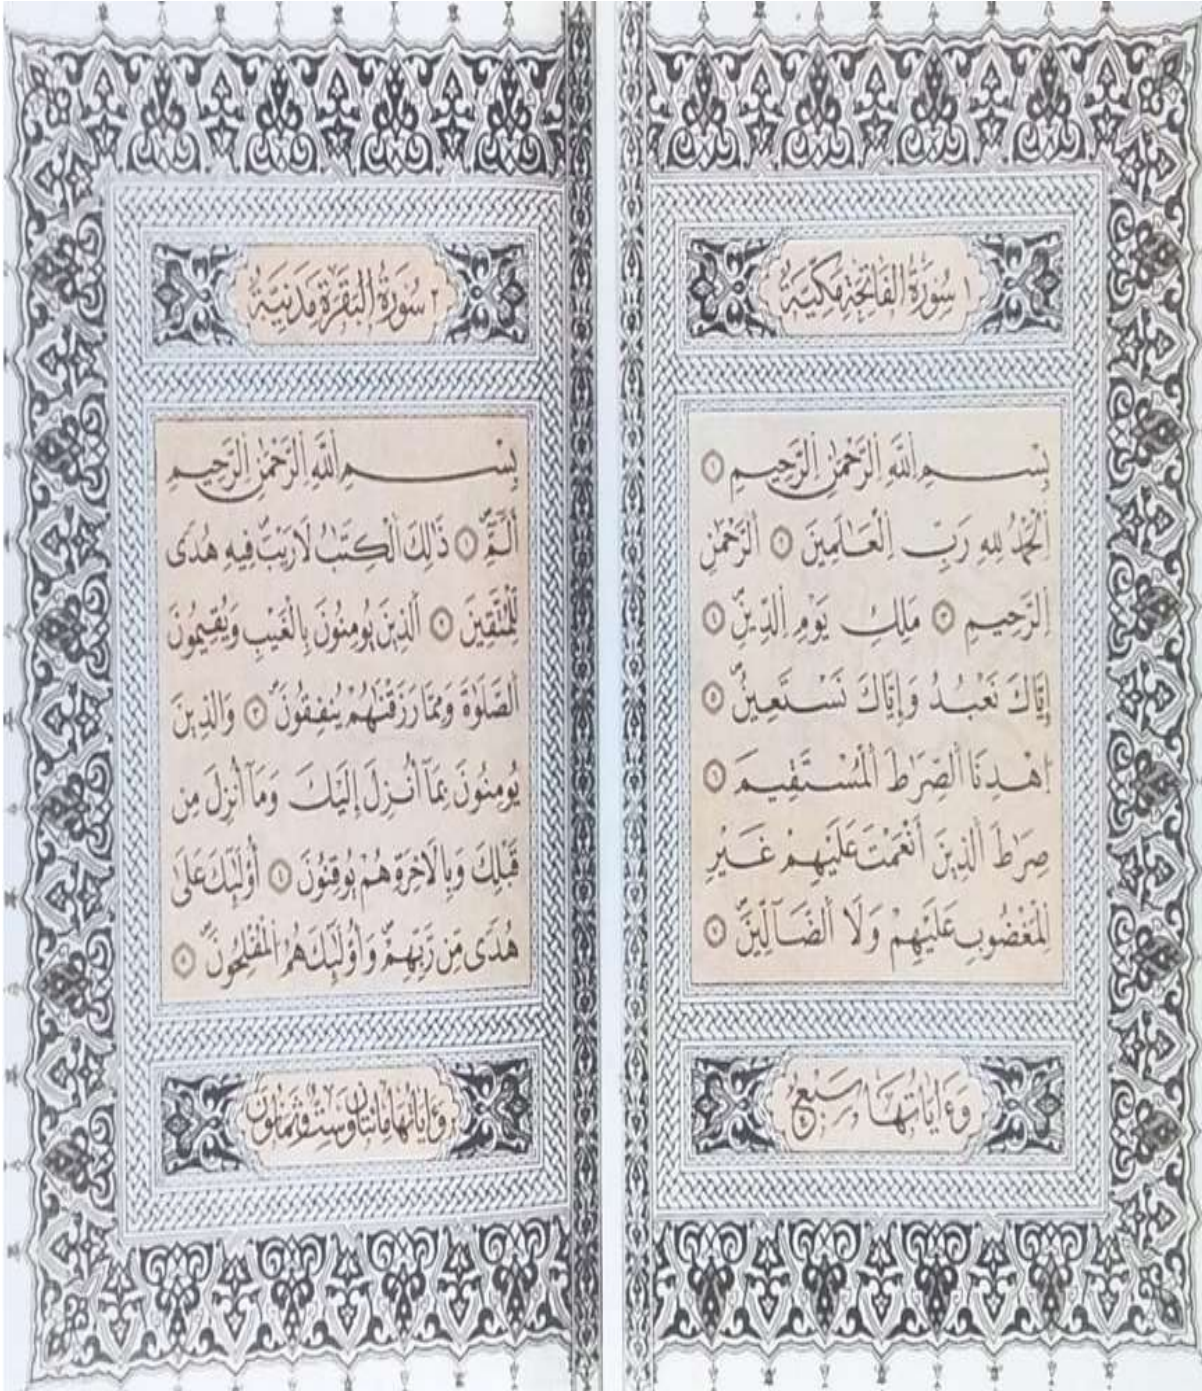 ١ سُورَةُ الفَاتِحَةِ مَكِّيَّةٌ
بِسْمِ اِللَّهِ اِلرَّحْمَٰنِ اِلرَّحِيمِ ١
اَلْحَمْدُ لِلهِ رَبِّ اِلْعَٰلَمِينَ ٢ اَلرَّحْمَٰنِ
اِلرَّحِيمِ ٣ مَلِكِ يَوْمِ اِلدِّينِ ٤
إِيَّاكَ نَعْبُدُ وَإِيَّاكَ نَسْتَعِينُ ٥
اِهْدِنَا اَلصِّرَٰطَ اَلْمُسْتَقِيمَ ٦
صِرَٰطَ اَلذِينَ أَنْعَمْتَ عَلَيْهِمْ غَيْرِ
اِلْمَغْضُوبِ عَلَيْهِمْ وَلَا اَلضَّآلِّينَ ٧
وَءَايَاتُهَا سَبْعٌ
٢ سُورَةُ البَقَرَةِ مَدَنِيَّةٌ
بِسْمِ اِللَّهِ اِلرَّحْمَٰنِ اِلرَّحِيمِ
أَلَٓمِّٓ ١ ذَٰلِكَ اَلْكِتَٰبُ لَا رَيْبَ فِيهِ هُدًى
لِّلْمُتَّقِينَ ٢ اَلذِينَ يُومِنُونَ بِالْغَيْبِ وَيُقِيمُونَ
اَلصَّلَوٰةَ وَمِمَّا رَزَقْنَٰهُمْ يُنفِقُونَ ٣ وَالذِينَ
يُومِنُونَ بِمَآ أُنزِلَ إِلَيْكَ وَمَآ أُنزِلَ مِن
قَبْلِكَ وَبِالَاخِرَةِ هُمْ يُوقِنُونَ ٤ أُوْلَٰٓئِكَ عَلَىٰ
هُدًى مِّن رَّبِّهِمْ وَأُوْلَٰٓئِكَ هُمُ اُلْمُفْلِحُونَ ٥
وَءَايَاتُهَا مِائَتَانِ وَسِتٌّ وَثَمَانُونَ